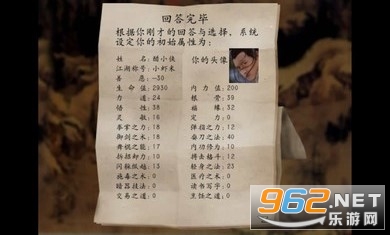 回答完毕
根据你刚才的回答与选择，系统
设定你的初始属性为：
姓名：醋小侠 你的头像
江湖称号：小虾米
善恶：-30
生命值：2930 内力值：200
力道：24 根骨：39
福缘：32
灵敏：16 定力：0
拳掌之力：18 弹指之力：12
御剑之术：18 刀法：40
17 内功修为：10
拆招卸力：10 搏击格斗：12
闪躲纵跃：13 轻身之法：23
施毒之术：0 医疗之术：0
暗器技法：0 读书写字：0
交易之道：0 烹饪之道：0
962.NET
乐游网